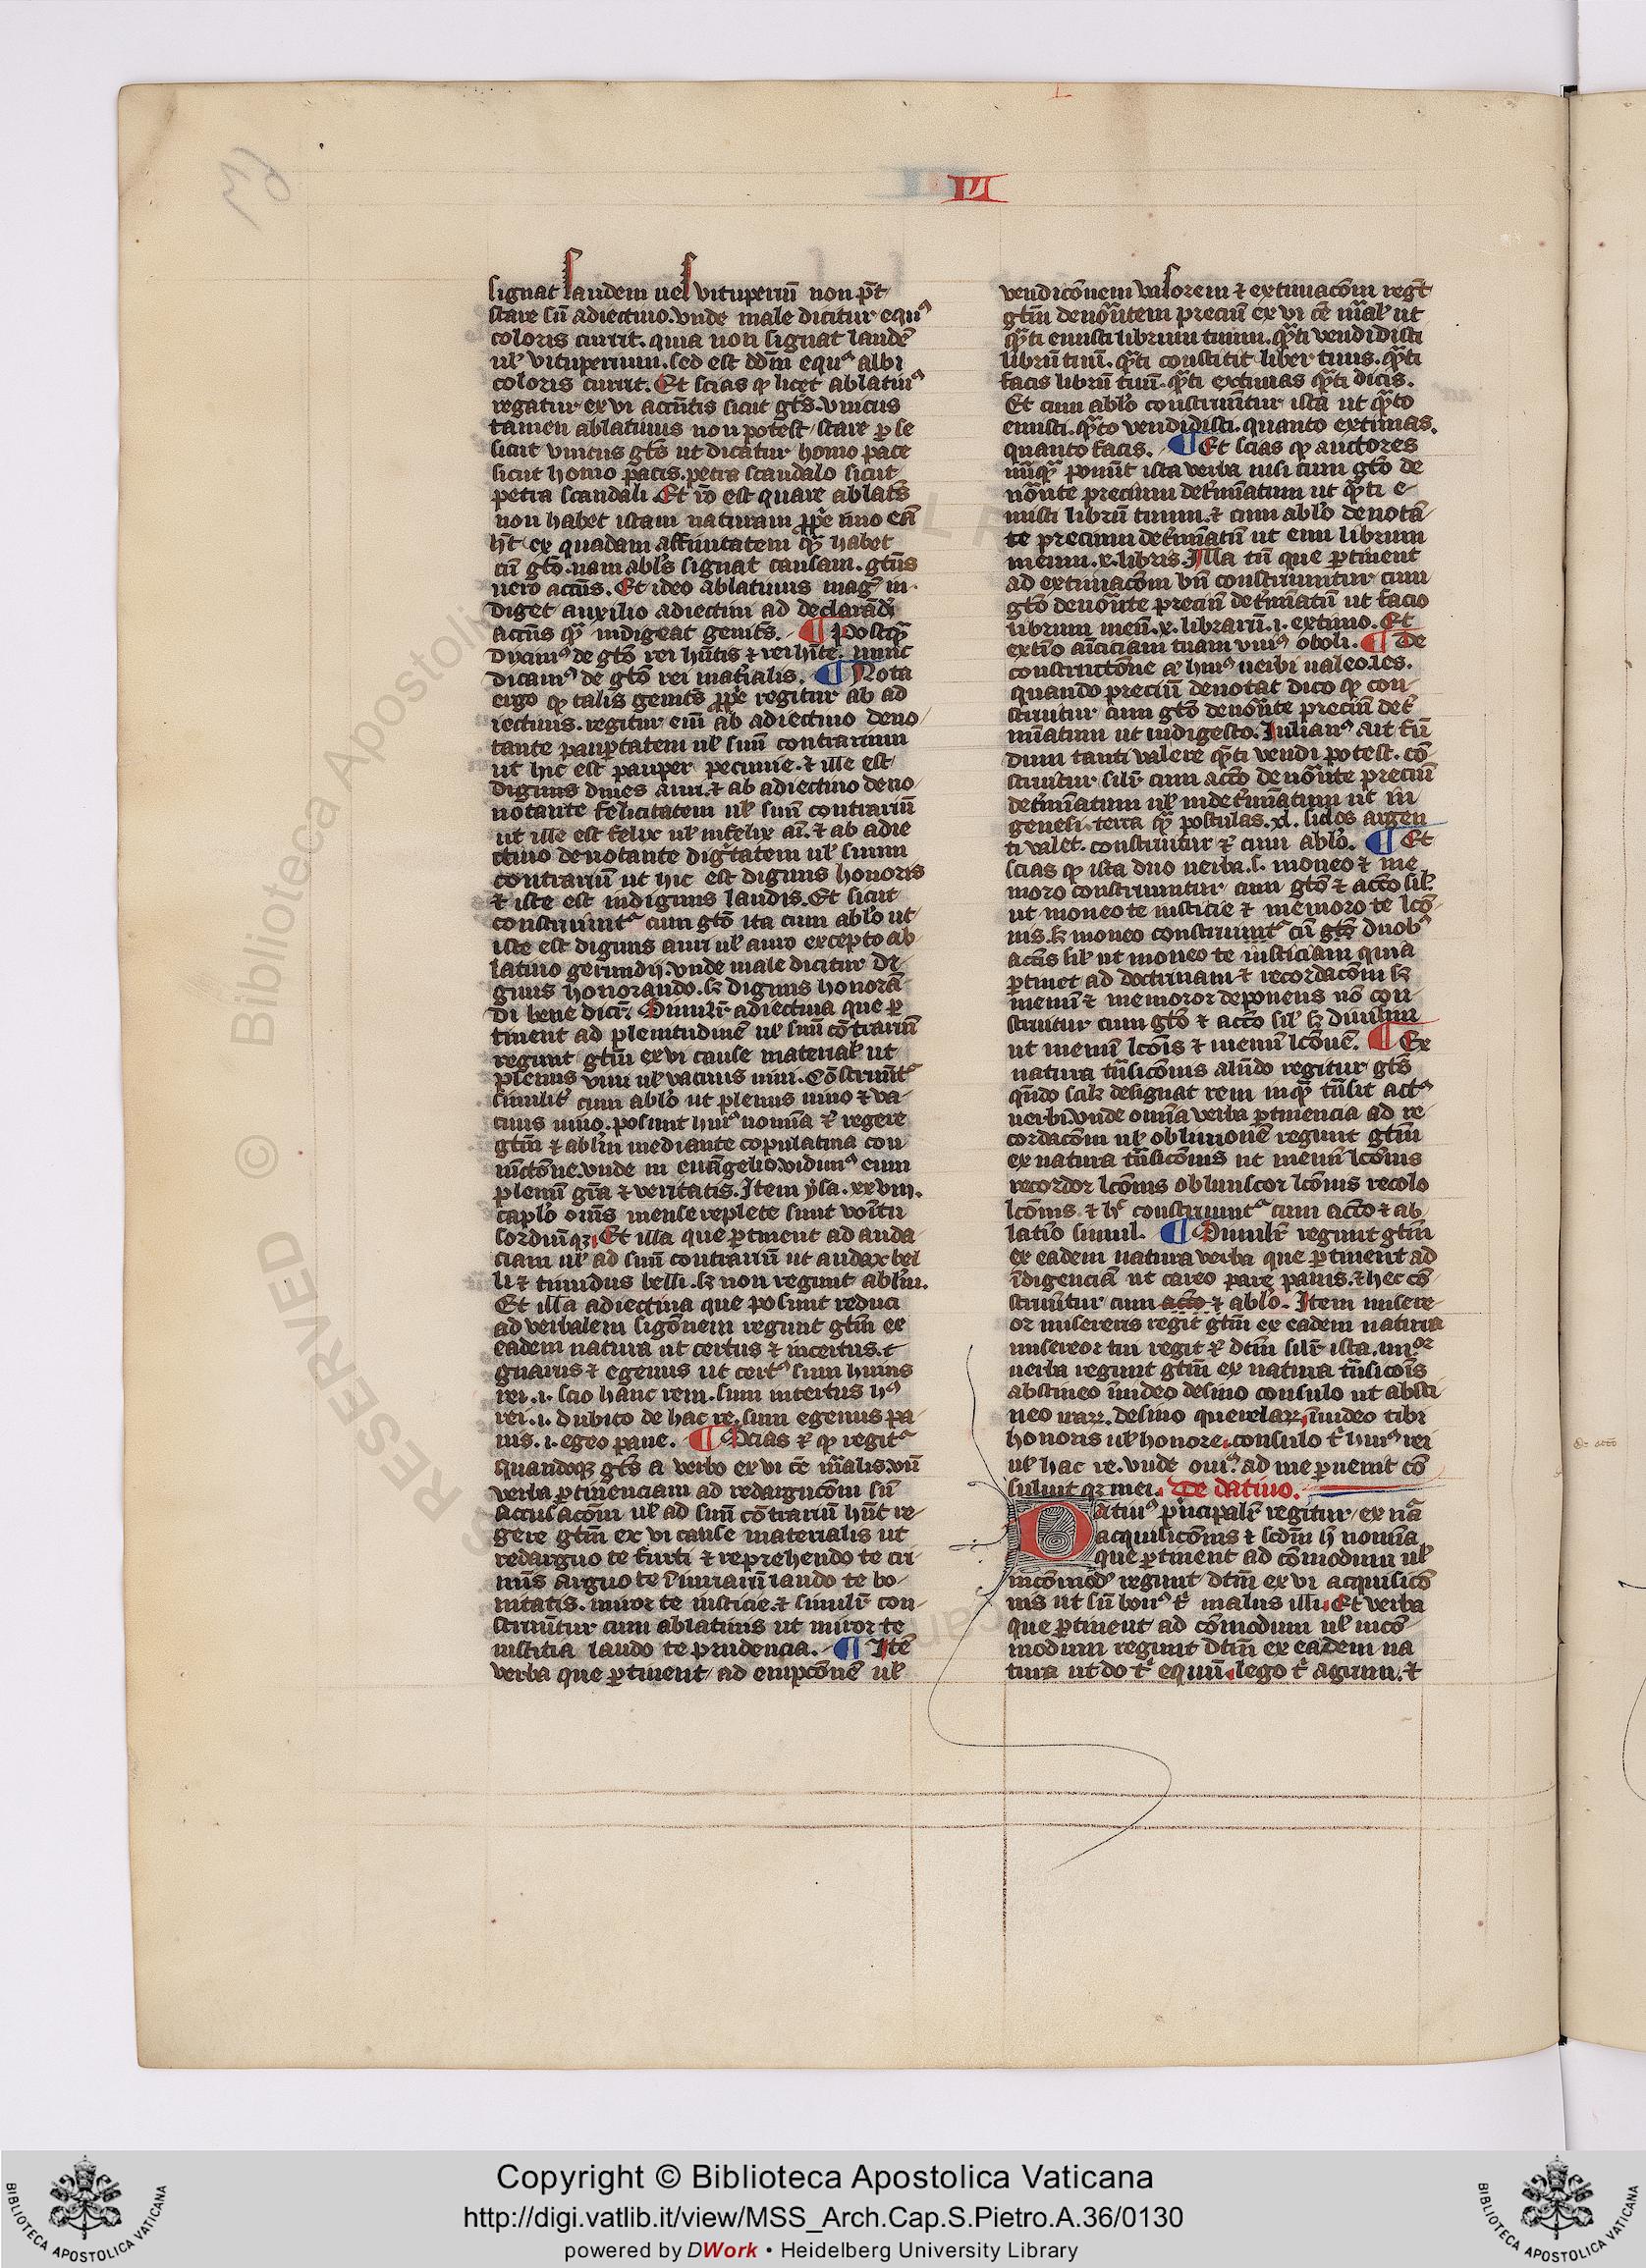 VI
signat laudem uel vituperiū non pt̄
stare sn̄ adiectiuo. vnde male dicitur equꝰ
coloris currit. quia non signat laudē
ul̓ vituperium. sed est dd̄m equꝰ albi
coloris currit. Et scias ꝙ licet ablatiuꝰ
regatur ex vi accn̄tis sicut gt̄s. vnicus
tamen ablatiuus non potest stare ꝑ se
sicut vnicus gt̄s ut dicatur homo pace
sicut homo pacis. petra scandalo sicut
petra scandali. Et rō est quare ablat̄s
non habet istam naturam ꝓpe īmo eā
ht̄ ex quadam affinitatem qͣ̄ habet
cū gt̄o. nam abl̓s signat causam. gt̄us
uero accn̄s. Et ideo ablatiuus magꝭ in
diget auxilio adiectiui ad declarādū
accn̄s qͣ̄ indigeat genit̄s. ¶ Postqͣ̄
dixim̄ꝰ de gt̄o rei hn̄tis ⁊ rei hīte. nunc
dicamꝰ de gt̄o rei mat̄ialis. ¶ Nota
ergo ꝙ talis genit̄s ꝓpe regitur ab ad
iectiuis. regitur eni ab adiectiuo deno
tante paupertatem ul̓ suū contrarium
ut hic est pauper pecunie. ⁊ ille est
dignus diues auri. ⁊ ab adiectiuo deno
nōtante felicitatem ul̓ suū contrariū
ut ille est felix ul̓ infelix aī. ⁊ ab adie
ctiuo denotante digītatem ul̓ suum
contrariū ut hic est dignus honoris
⁊ iste est indignus laudis. Et sicut
construūt᷑ cum gt̄o ita cum abl̓o ut
iste est dignus auri ul̓ auro excepto ab
latiuo gerundij. vnde male dicitur di
gnus honorando. sꝫ dignus honorā
di bene dicit᷑. Similit̄ adiectiua que ꝑ
tinent ad plenitudinē ul̓ suū cōtrariū
regunt gt̄m ex vi cause material̓ ut
plenus vini ul̓ vacuus uini. Cōstruūt᷑
similit̄ cum abl̓o ut plenus uino ⁊ va
cuus uino. possunt huiꝰ nomīa ⁊ regere
gt̄m ⁊ abl̓m mediante copulatiua con
iūctōne. vnde in euāgelio. vidimꝰ eum
plenū gr̄a ⁊ veritatis. Item ysa. xxviij.
capl̓o oms̄ mense replete sunt vomitu
sordiūqꝫ. Et illa que ꝑtinent ad auda
ciam ul̓ ad suū contrariū ut audax bel
li ⁊ timidus belli. sꝫ non regunt abl̓m.
Et illa adiectiua que possunt reduci
ad verbalem sigōnem regunt gt̄m ex
eadem natura ut certus ⁊ incertus. ⁊
gnarus ⁊ egenus ut cert᷑ sum huius
rei .i. scio hanc rem. sum incertus hꝰ
rei .i. dubito de hac re. sum egenus pa
nis .i. egeo pane. ¶ Scias ⁊ ꝙ regit᷑
quandoqꝫ gt̄s a verbo ex vi cē māalis. vn̄
verba ꝑtinenciam ad redargucōm sn̄
accusacōm ul̓ ad suū cōtrariū hn̄t re
gere gt̄m ex vi cause materialis ut
redarguo te furti ⁊ reprehendo te cri
mīs arguo te īiuriarū laudo te bo
nitatis. miror te iusticie. ⁊ similit̄ con
struūtur cum ablatiuis ut miror te
iusticia laudo te prudencia. ¶ Itē
verba que ꝑtinent ad empcōnē ul̓
vendicōnem valorem ⁊ extimacōm regūt
gt̄m denotātem preciū ex vi cē māal̓ ut
qͣ̄ti emisti librum tuum. qͣ̄ti vendidisti
librū tuū. qͣ̄ti constitit liber tuus. qͣ̄ti
facis librū tuū. qͣ̄ti extimas qͣ̄ti dicis.
Et cum abl̓o construūtur ista ut qͣ̄to
emisti. qͣ̄to vendidisti. quanto extimas.
quanto facis. ¶ Et scias ꝙ auctores
nūqͣ̄ ponūt ista verba nisi cum gt̄o de
notāte precium det̄minatum ut qͣ̄ti e
misti librū tuum. ⁊ cum abl̓o denotā
te precium det̄minatū ut emi librum
meum .x. libris. Illa tn̄ que ꝑtinent
ad extimacōm bn̄ construuntur cum
gt̄o denotāte preciū det̄minatū ut facio
librum meū .x. librarū .i. extimo. Et
extīo amiciciam tuam vniꝰ oboli. ¶ De
constructōne aū huiꝰ uerbi ualeo. les.
quando preciū denotat dico ꝙ con
struitur cum gt̄o denotāte preciū det̄
minatum ut in digesto. Iulianꝰ ait fū
dum tanti valere qͣ̄ti vendi potest. cō
struitur silit̄ cum accō denotāte preciū
det̄minatum ul̓ indet̄minatum ut in
genesi. terra qͣ̄ postulas .xl. siclos argen
ti valet. construitur ⁊ cum abl̓o. ¶ Et
scias ꝙ ista duo uerba .s. moneo ⁊ me
moro construuntur cum gt̄o ⁊ accō sil̓
ut moneo te iusticie ⁊ memoro te lcō
nis. sꝫ moneo construūt᷑ cū gt̄o duobꝰ
actis sil̓ ut moneo te iusticiam quia
ꝑtinet ad doctrinam ⁊ recordacōm sꝫ
memī ⁊ memoror deponens nō con
struitur cum gt̄o ⁊ accō sil̓ sꝫ diuisim
ut memī lcōis ⁊ memī lcōnē. ¶ Ex
natura tn̄sicōnis alīdo regitur gt̄s
qn̄do scil̓ designat rem inqͣ̄ tn̄sit actꝰ
uerbi. vnde omīa verba ꝑtinencia ad re
cordacōm ul̓ obliuionē regunt gt̄m
ex natura tn̄sicōnis ut memī lcōnis
recordor lcōnis obliuiscor lcōnis recolo
lcōnis. ⁊ hͦ construunt᷑ cum accō ⁊ ab
latīo simul. ¶ Similit̄ regunt gt̄m
ex eadem natura verba que ꝑtinent ad
īdigenciā ut careo pare panis. ⁊ hec cō
struūtur cum accō ⁊ abl̓o. Item misere
or misereris regit gt̄m ex eadem natura
misereor tui regit ⁊ dt̄m silit̄ ista .iiiiᵒʳ
uerba regunt gt̄m ex natura tn̄sicōis
abstineo īuideo desino consulo ut absti
neo irarꝝ. desino querelarꝝ. īuideo tibi
honoris ul̓ honore. consulo t̄ huiꝰ rei
ul̓ hac re. vnde oui. ad me ꝑuenit cō
suluit qꝫ mei. De datiuo.
Datiuꝰ principalit̄ regitur ex nā
acquisicōnis ⁊ scdm̄ h nomīa
que ꝑtinent ad cōmodum ul̓
incōmodū regunt dt̄m ex vi acquisicō
nis ut sū bonꝰ t̄ malus illi. Et verba
que ꝑtinent ad cōmodum ul̓ incō
modum regunt dt̄m ex eadem na
tura ut do t̄ equū. lego t̄ agnum. ⁊
Copyright © Biblioteca Apostolica Vaticana
http://digi.vatlib.it/view/MSS_Arch.Cap.S.Pietro.A.36/0130
powered by DWork • Heidelberg University Library